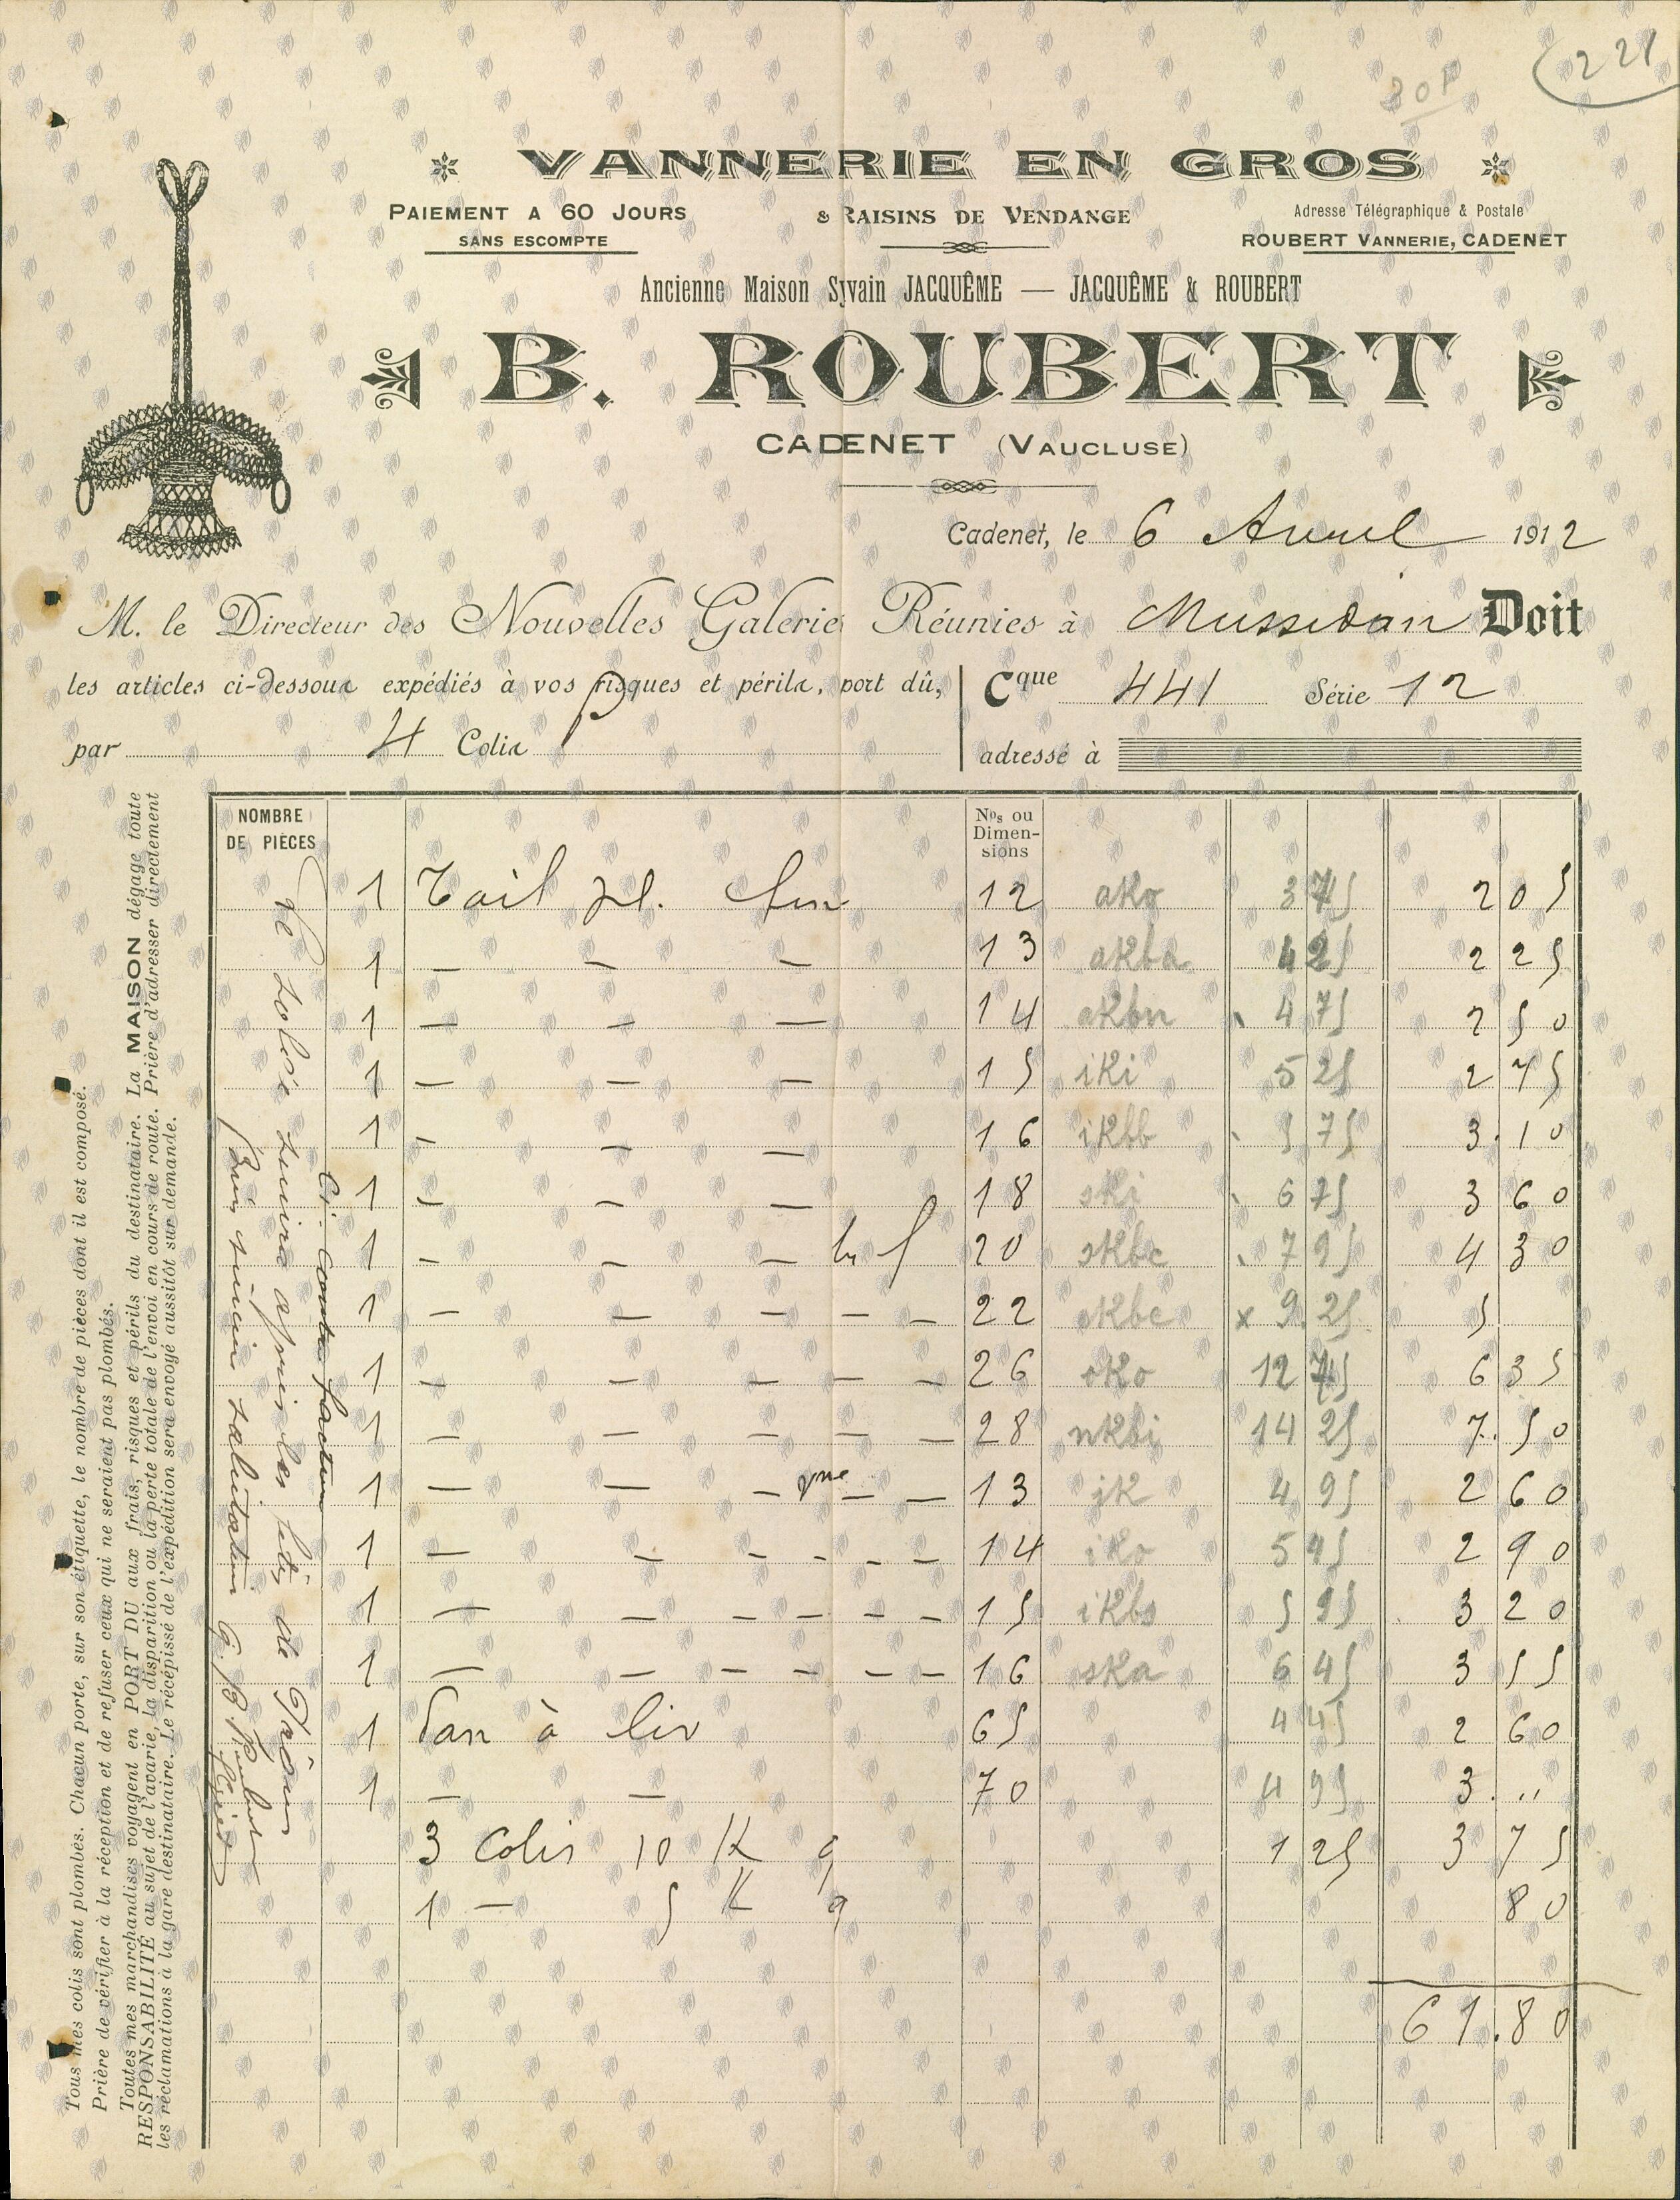 221
20F
VANNERIE EN GROS
PAIEMENT A 60 JOURS
SANS ESCOMPTE
& RAISINS DE VENDANGE
Adresse Télégraphique & Postale
ROUBERT VANNERIE, CADENET
Ancienne Maison Sylvain JACQUÊME — JACQUÊME & ROUBERT
B. ROUBERT
CADENET (VAUCLUSE)
Cadenet, le 6 Avril 1912
M. le Directeur des Nouvelles Galeries Réunies à Mussidan Doit
les articles ci-dessous expédiés à vos risques et périls, port dû,
par 4 Colis
Cque 441 Série 12
adressé à
NOMBRE DE PIÈCES
Nos ou Dimensions
1 Tail pl. 12 ako 3 75 2 05
1 — — — 13 akba 4 25 2 25
1 — — — 14 akbn 4 75 2 50
1 — — — 15 iki 5 25 2 75
1 — — — 16 ikbb 5 75 3.10
1 — — — 18 ski 6 75 3 60
1 — — — 20 skbc 7 95 4 30
1 — — — — 22 okbc x 9 25 5
1 — — — — — 26 oko 12 75 6 35
1 — — — — — 28 nkbi 14 25 7.50
1 — — — — — 13 jk 4 95 2 60
1 — — — — — — 14 iko 5 45 2 90
1 — — — — — — 15 ikbs 5 95 3 20
1 — — — — — — 16 ska 6 45 3 55
1 Pan à liv 65 4 45 2 60
1 — — 70 4 95 3. "
3 colis 10 K g 1 25 3 75
1 — 5 K g 80
61.80
Le solde suivra après les fêtes de
Ci-contre facture
salutations
Tous mes colis sont plombés. Chacun porte, sur son étiquette, le nombre de pièces dont il est composé.
Prière de vérifier à la réception et de refuser ceux qui ne seraient pas plombés.
Toutes mes marchandises voyagent en PORT DU aux frais, risques et périls du destinataire. La MAISON dégage toute
RESPONSABILITÉ au sujet de l'avarie, la disparition ou la perte totale de l'envoi en cours de route. Prière d'adresser directement
les réclamations à la gare destinataire. Le récépissé de l'expédition sera envoyé aussitôt sur demande.